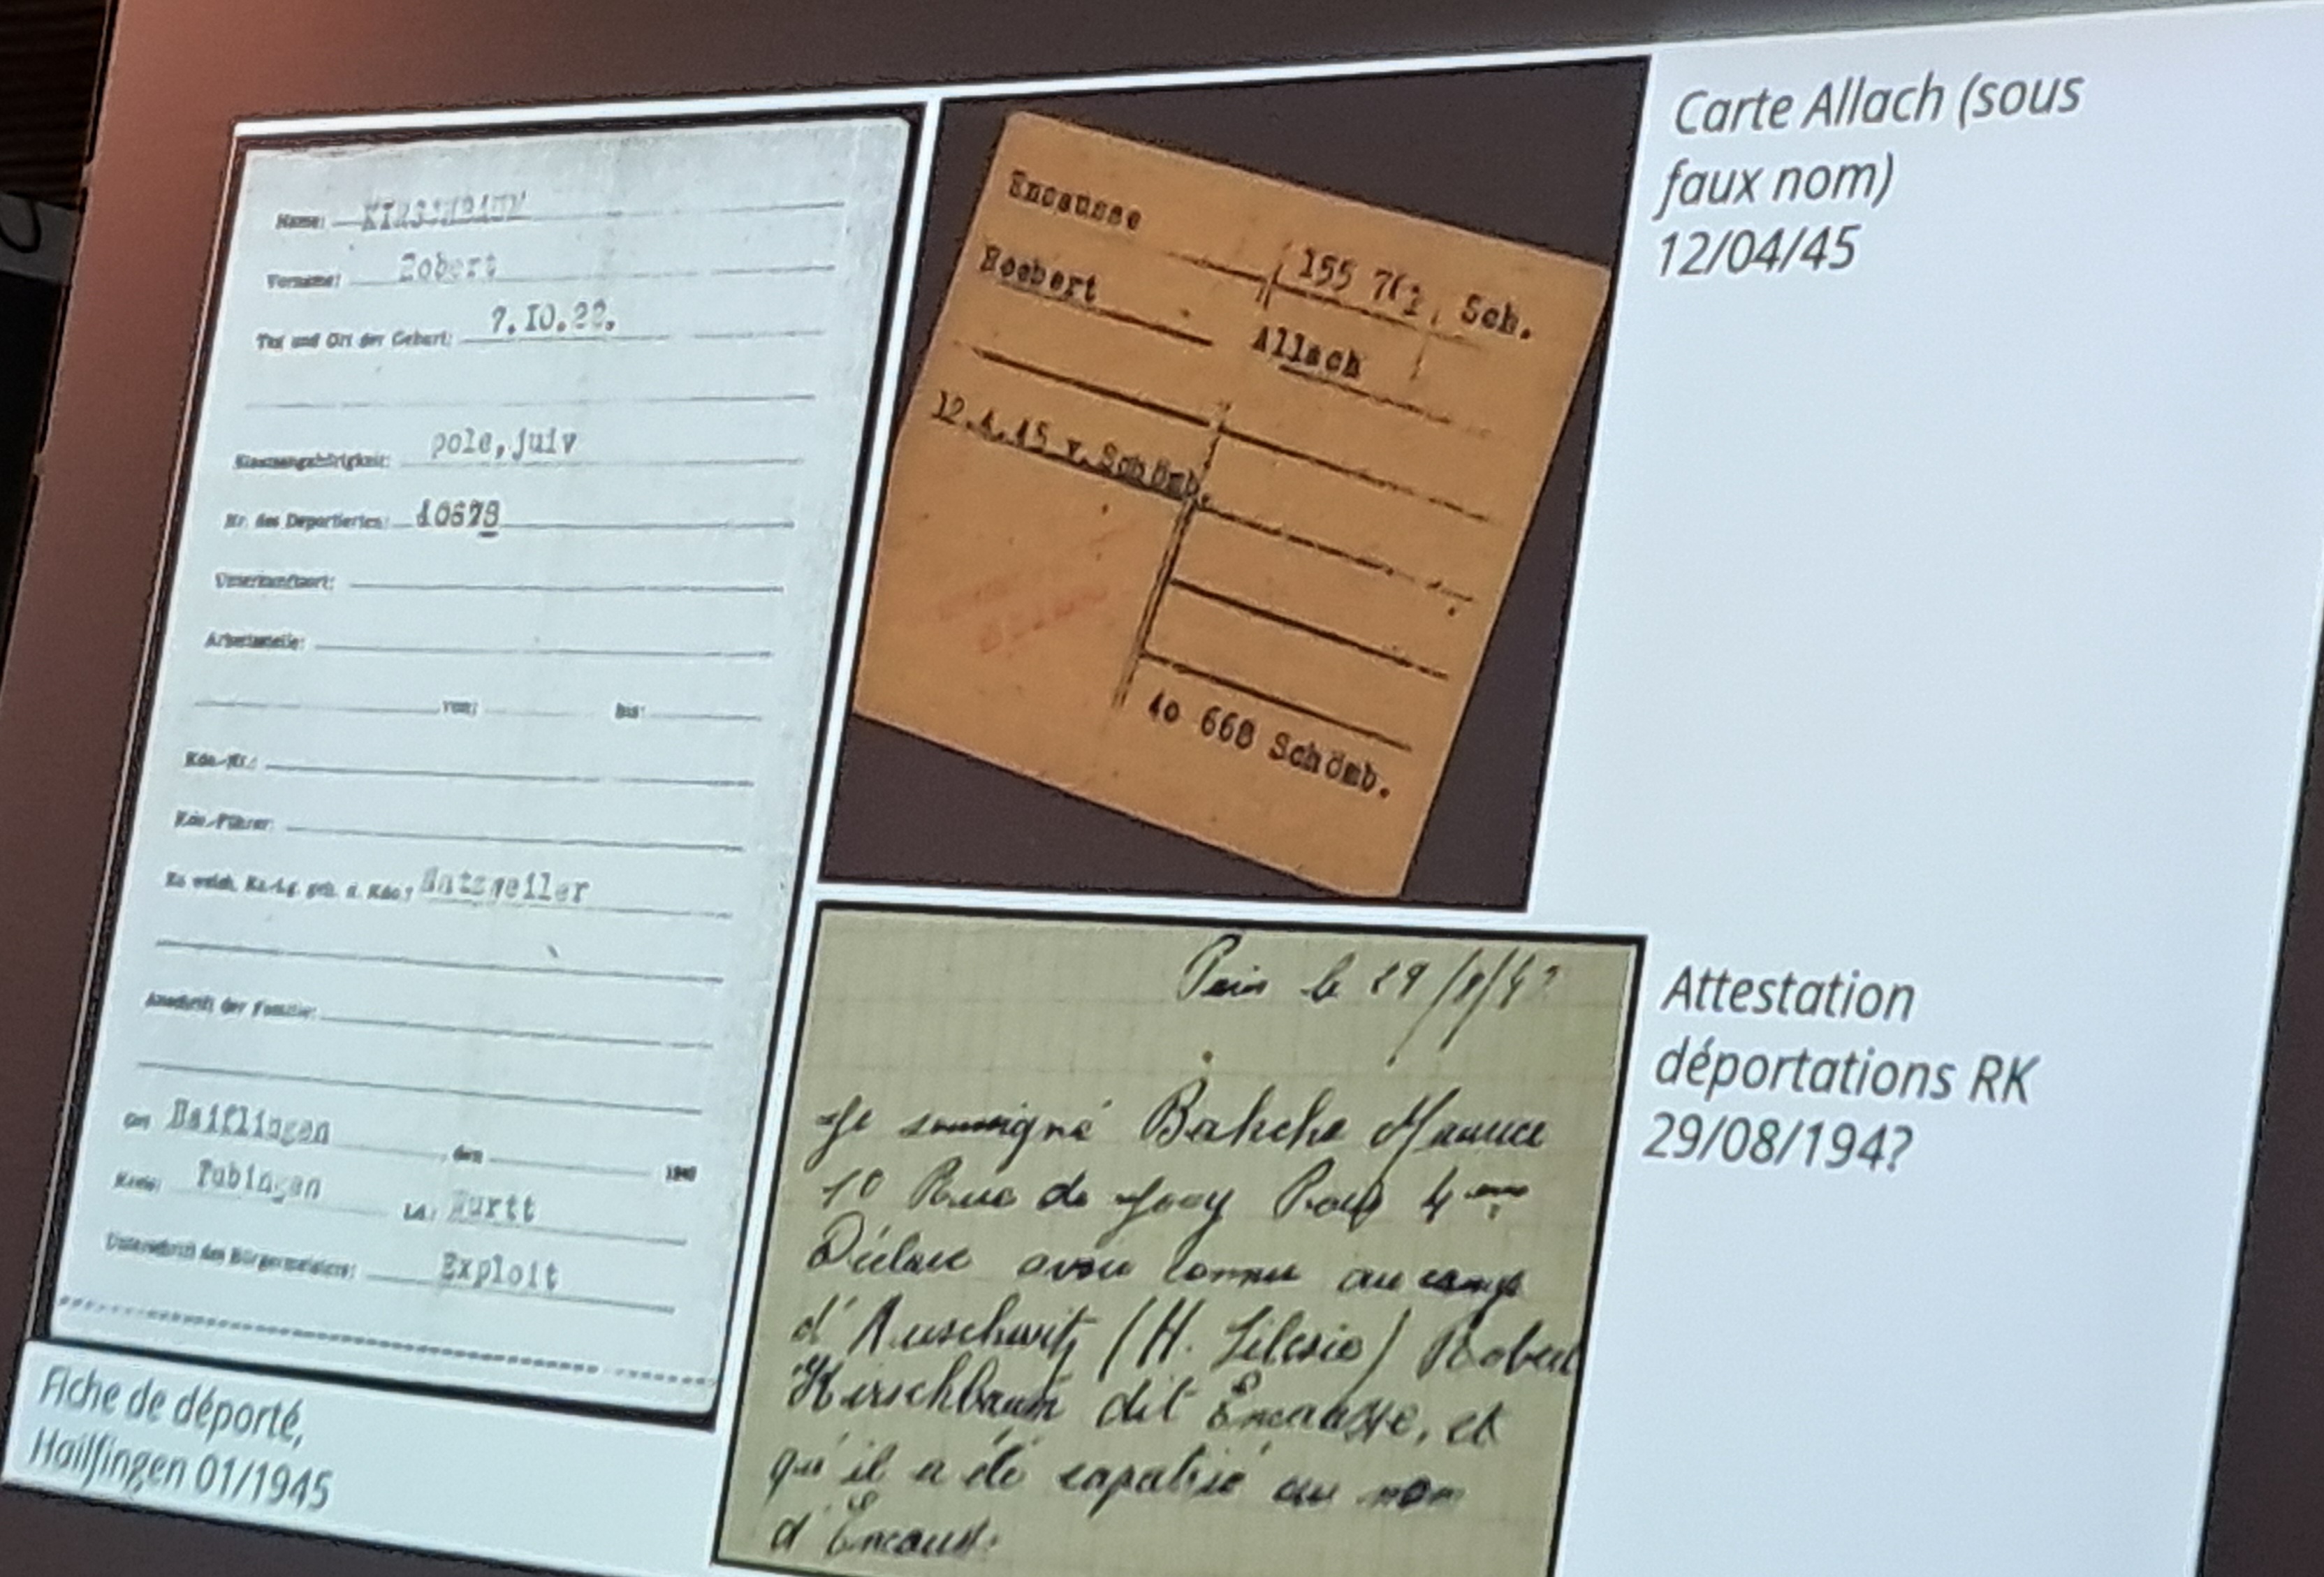 Name: KIRSCHBAUM
Vorname: Robert
Tag und Ort der Geburt: 7.10.22.
Staatsangehörigkeit: pole, juiv
Nr. des Deportierten: 40678
Unterkunftsort:
Arbeitsstelle:
von: bis:
Kdo.-Nr.:
Kdo.-Führer:
Zu welch. Kz.-Lg. geh. d. Kdo.? Natzweiler
Anschrift der Familie:
Ort Hailfingen, den 194
Kreis: Tubingen Ld.: Wurtt
Unterschrift des Bürgermeisters: Exploit
Fiche de déporté,
Hailfingen 01/1945
Encausse
155 76 Sch.
Roebert
Allach
12.4.45 v. Schömb.
40 668 Schömb.
Carte Allach (sous
faux nom)
12/04/45
Paris le 29/8/4
Je soussigné Bahche Maurice
10 Rue de Jouy Paris 4
Déclare avoir connu au camp
d'Auschwitz (H. Silesie) Robert
Kirschbaum dit Encausse, et
qu'il a été rapatrié au nom
d'Encauss.
Attestation
déportations RK
29/08/194?